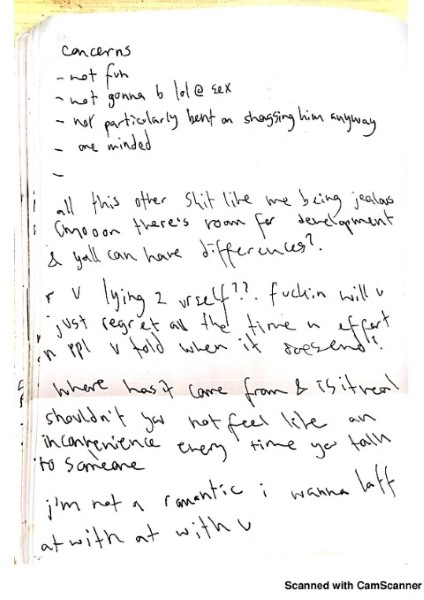 concerns
- not fun
- not gonna b lol @ sex
- not particularly bent on shagging him anyway
- one minded
-
all this other shit like me being jealous
cmooon there's room for development
& yall can have differences?
r u lying 2 urself??. fuckin will u
just regret all the time n effort
n ppl u told when it doesend?
where has it come from & is it real
shouldn't you not feel like an
inconvenience every time you talk
to someone
i'm not a romantic i wanna laff
at with at with u
Scanned with CamScanner